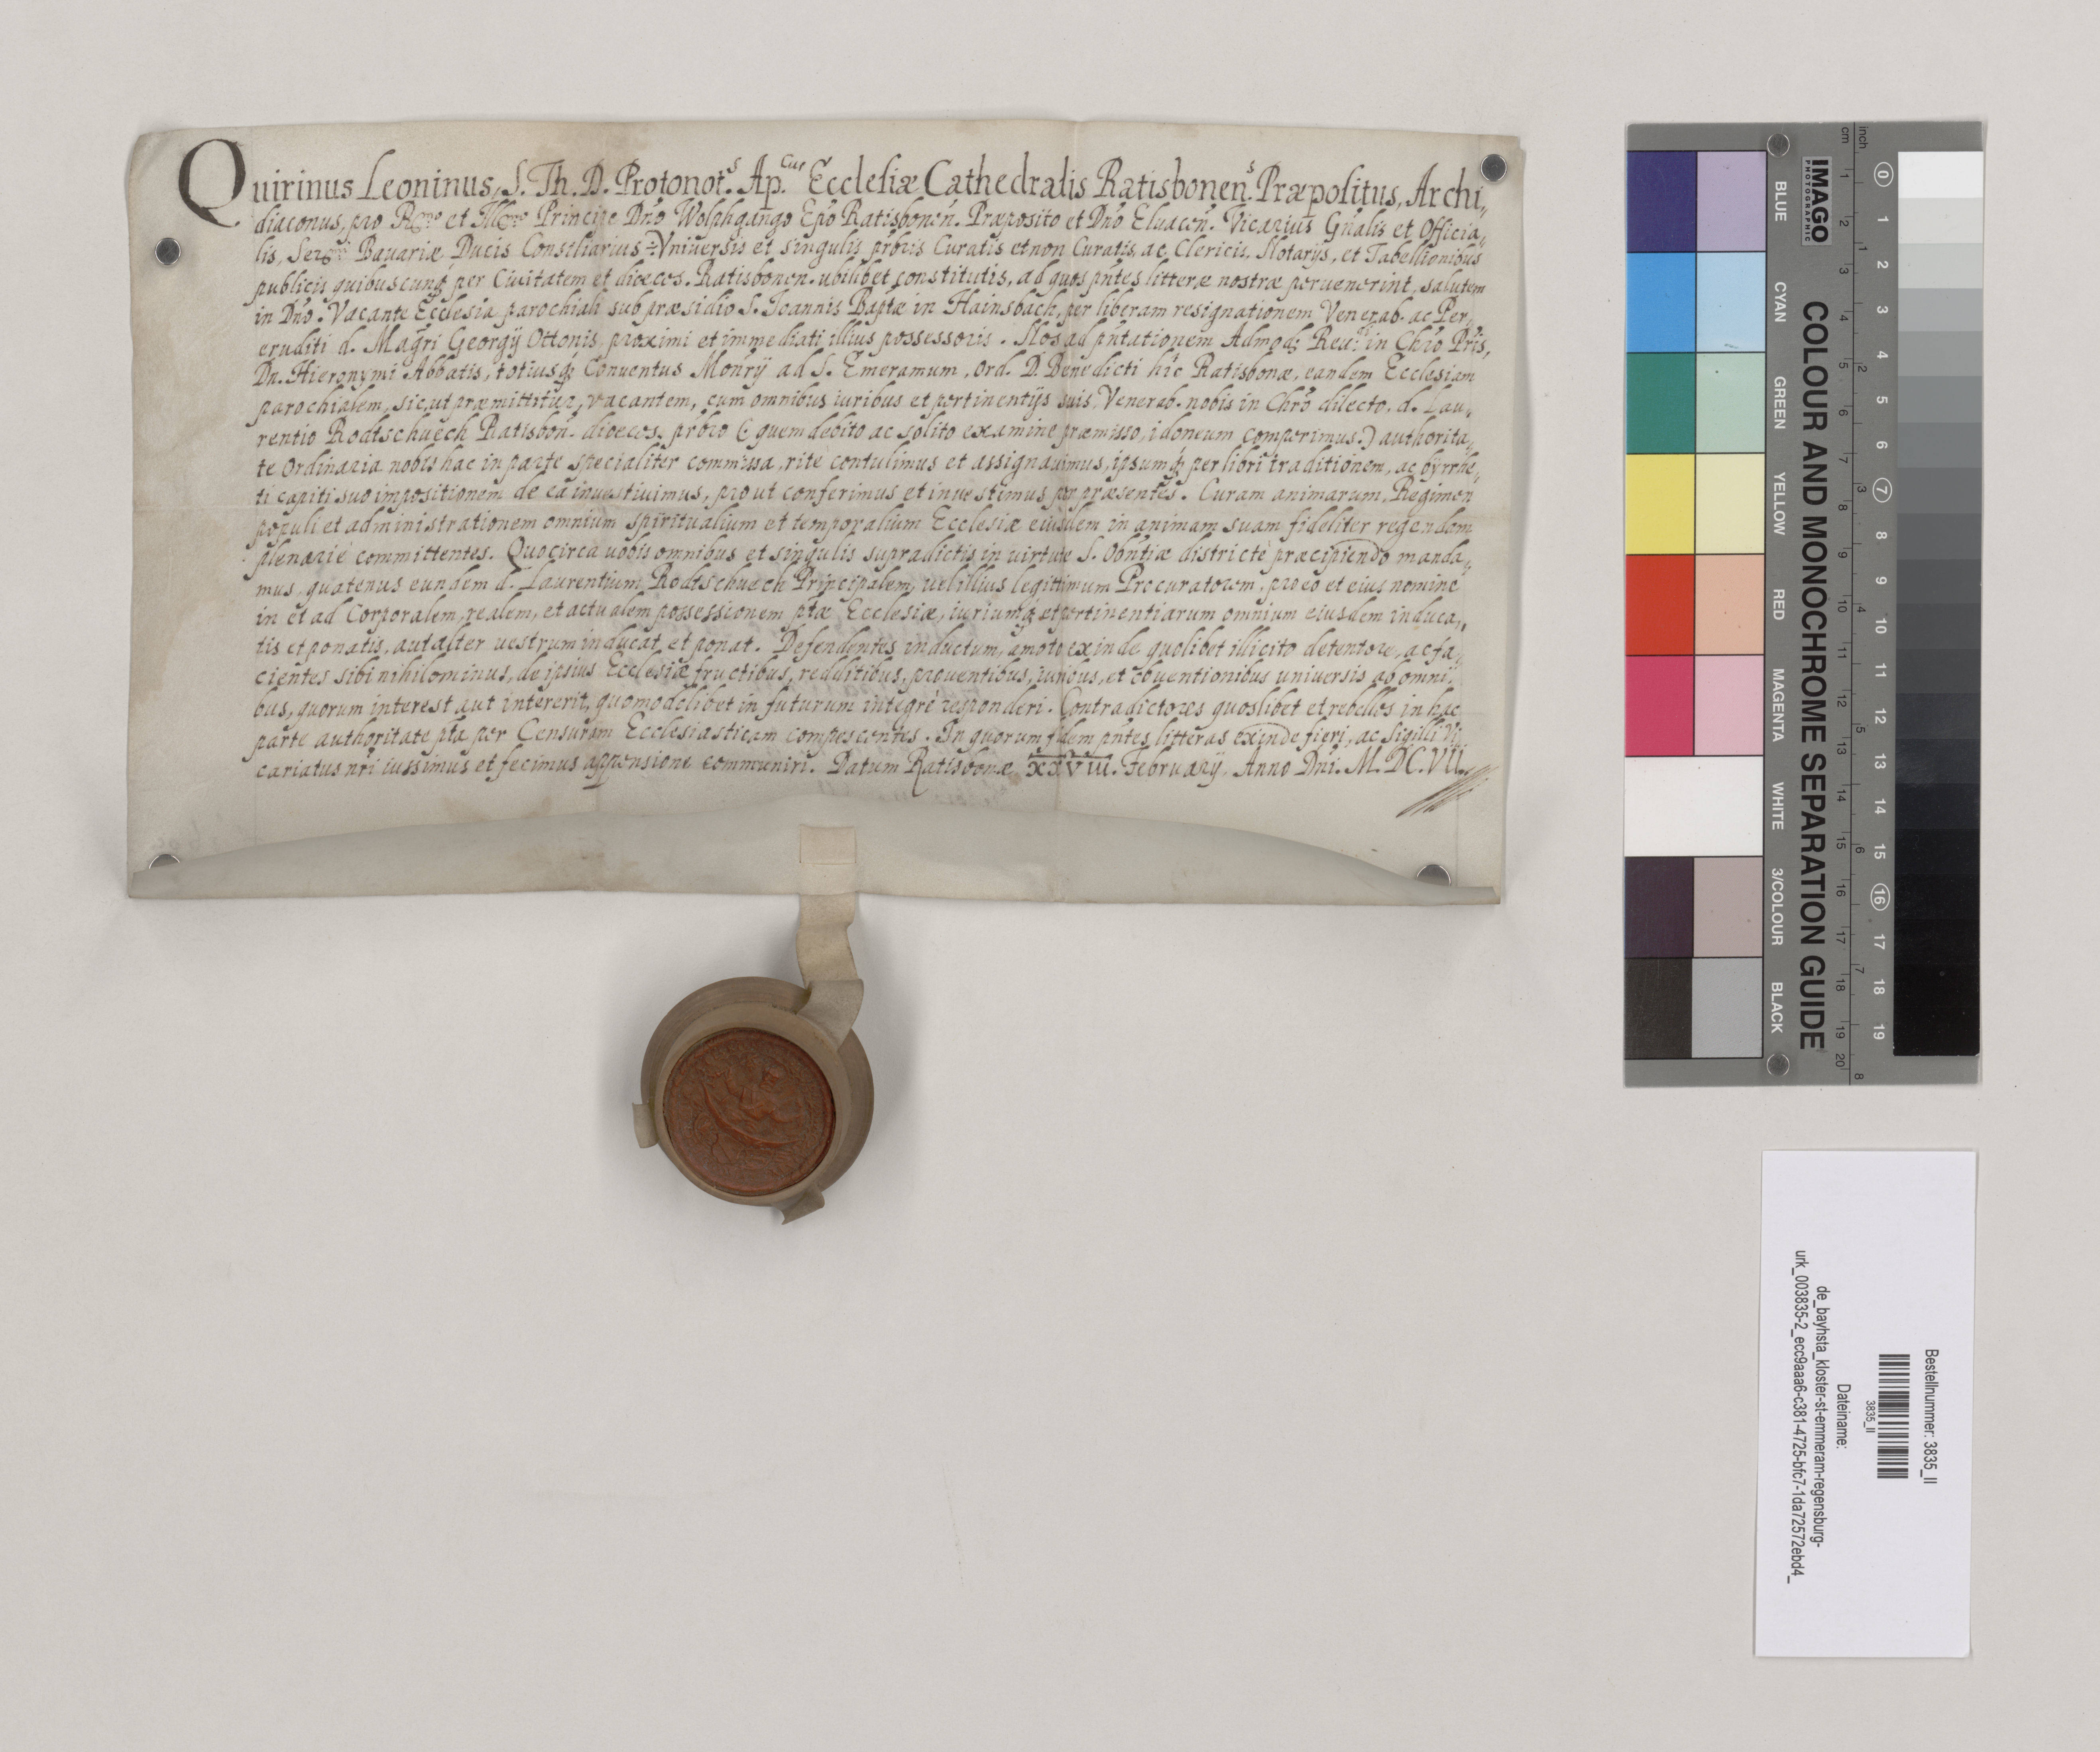 Quirinus Leoninus, S. Th. D. Protonot.s Ap.cus Ecclesiæ Cathedralis Ratisbonen.s Præpositus, Archi„
diaconus, pro R.mo et Ill.mo Principe Dn̄o Wolphgango Ep̄o Ratisbonen̄. Præposito et Dn̄o Eluacen̄. Vicarius Gn̄alis et Officia„
lis, Ser.mi Bauariæ Ducis Consiliarius ÷ Vniuersis et singulis pr̄bris Curatis et non Curatis, ac Clericis, Notarijs, et Tabellionibus
publicis quibuscunq; per Ciuitatem et diœces. Ratisbonen. ubilibet constitutis, ad quos pn̄tes litteræ nostræ peruenerint, salutem
in Dn̄o. Vacante Ecclesia parochiali sub præsidio S. Joannis Bap̄tæ in Hainsbach, per liberam resignationem Venerab. ac Per„
eruditi d. Magr̄i Georgij Ottonis, proximi et immediati illius possessoris. Nos ad pn̄tationem Admod; Reu.di in Chr̄o Pr̄is,
Dn. Hieronymi Abbatis, totiusq; Conuentus Mon̄rij ad S. Emeramum, Ord. D. Benedicti hic Ratisbonæ, eandem Ecclesiam
parochialem, sicut præmittitur, vacantem, cum omnibus iuribus et pertinentijs suis, Venerab. nobis in Chr̄o dilecto, d. Lau„
rentio Rodtschuech Ratisbon. diœces. pr̄bro (: quem debito ac solito examine præmisso, idoneum comperimus:) authorita„
te Ordinaria nobis hac in parte specialiter commissa, ritè contulimus et assignauimus, ipsumq; per libri traditionem, ac byrrhe„
ti capiti suo impositionem de eâ inuestiuimus, prout conferimus et inuestimus per præsentes. Curam animarum, Regimen
populi et administrationem omnium spiritualium et temporalium Ecclesiæ eiusdem in animam suam fideliter regendam
plenariè committentes. Quocirca uobis omnibus et singulis supradictis in uirtute S. Obn̄tiæ districtè præcipiendo manda„
mus, quatenus eundem d. Laurentium Rodtschuech Principalem, uel illius legittimum Procuratorem, pro eo et eius nomine
in et ad Corporalem, realem, et actualem possessionem p̄tæ Ecclesiæ, iuriumq; et pertinentiarum omnium eiusdem induca„
tis et ponatis, aut alter uestrum inducat et ponat. Defendentes inductum, amoto exinde quolibet illicito detentore, ac fa„
cientes sibi nihilominus, de ipsius Ecclesiæ fructibus, redditibus, prouentibus, iuribus, et obuentionibus uniuersis ab omni„
bus, quorum interest aut intererit, quomodolibet in futurum integrè responderi. Contradictores quoslibet et rebelles in hac
parte authoritate p̄ta per Censuram Ecclesiasticam compescentes. In quorum fidem pn̄tes litteras exinde fieri, ac Sigilli Vi
cariatus nr̄i iussimus et fecimus appensione communiri. Datum Ratisbonæ XXVIII. February, Anno Dn̄i. M.DC.VII.
IMAGO
PHOTOGRAPHIC
COLOUR AND MONOCHROME SEPARATION GUIDE
BLUE CYAN GREEN YELLOW RED MAGENTA WHITE 3/COLOUR BLACK
cm 1 2 3 4 5 6 7 8 9 10 11 12 13 14 15 16 17 18 19 20
inch 1 2 3 4 5 6 7 8
0 1 2 3 4 5 6 7 8 9 10 11 12 13 14 15 16 17 18 19
Bestellnummer: 3835_II
3835_II
Dateiname:
de_bayhsta_kloster-st-emmeram-regensburg-
urk_003835-2_ecc9aaa6-c381-4725-bfc7-1da72572ebd4_